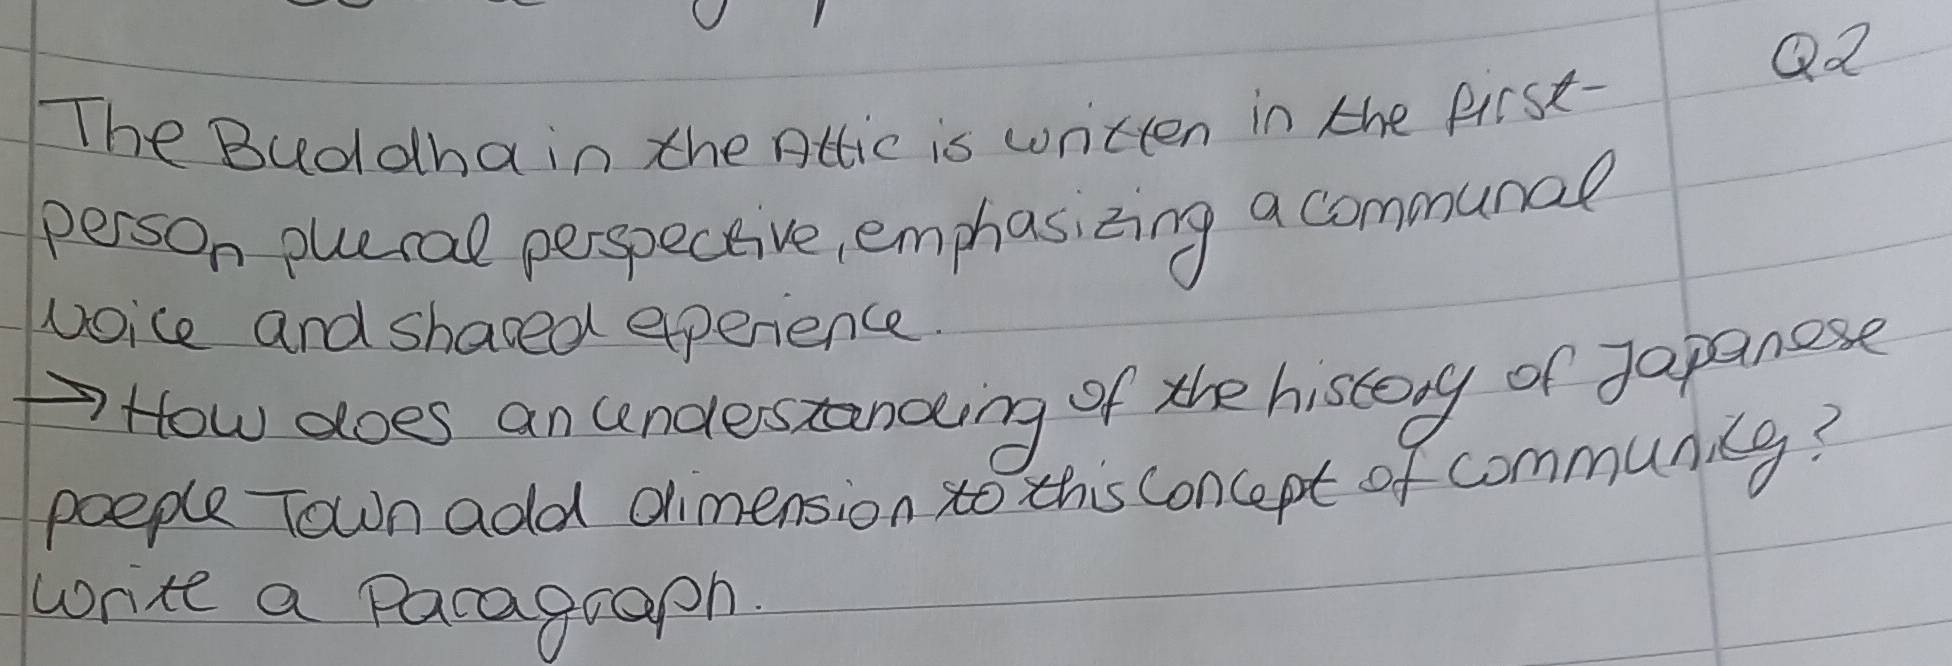 Q2
The Buddha in the Attic is written in the first-
person plueral perspective, emphasizing a communal
voice and shared experience.
→ How does an understanding of the history of Japanese
poeple Town add dimension to this concept of community?
write a Paragraph.